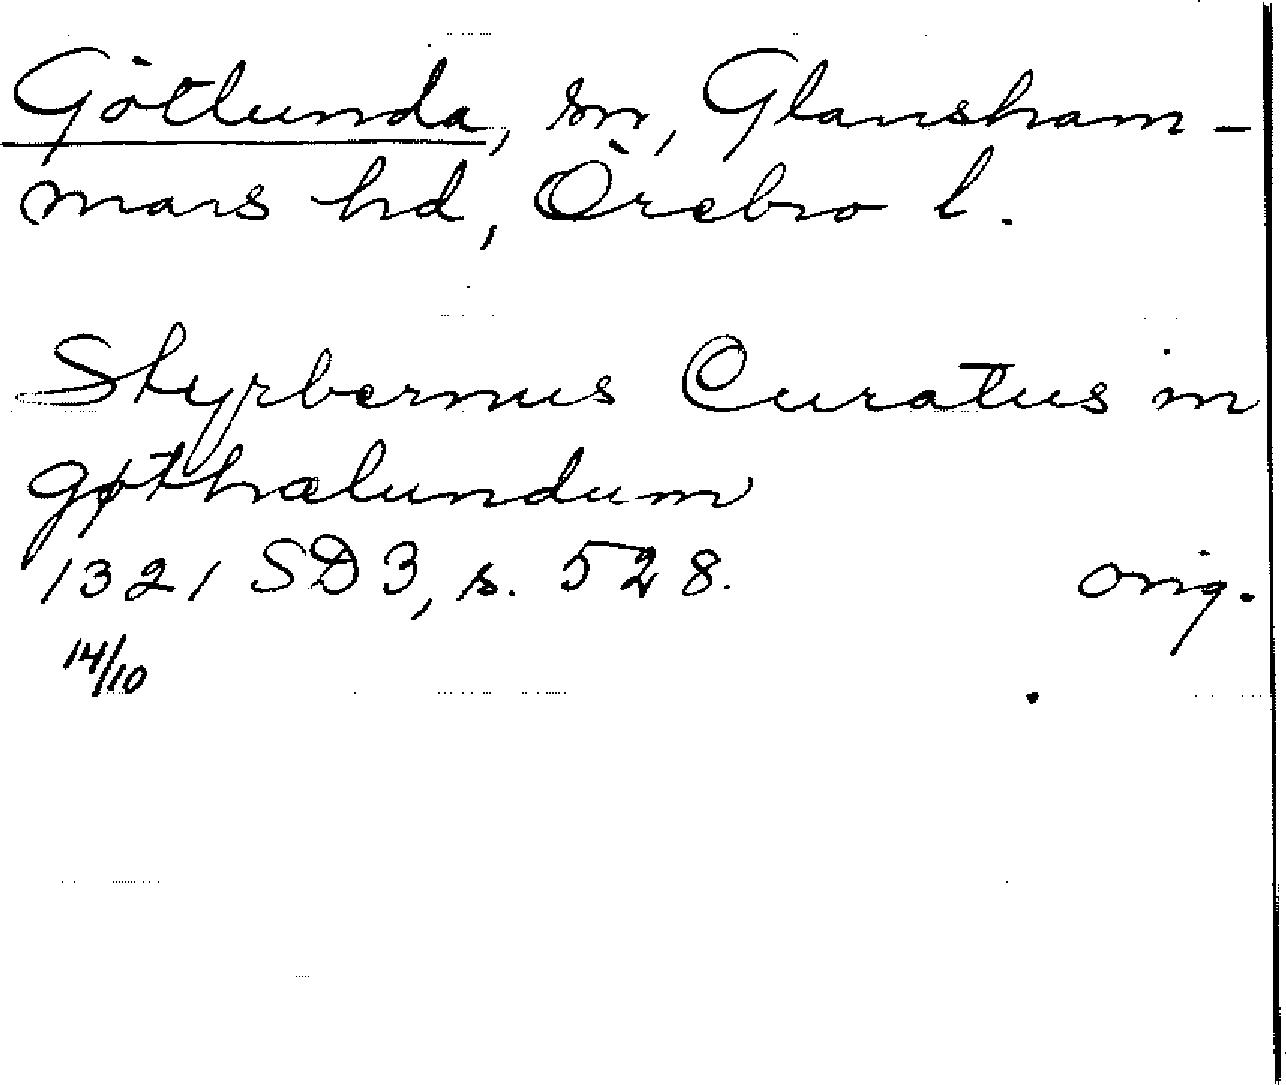 Götlunda, sn, Glansham-
mars hd, Örebro l.
Styrbernus Curatus in
gøthælundum
1321 SD 3, s. 528. orig.
14/10